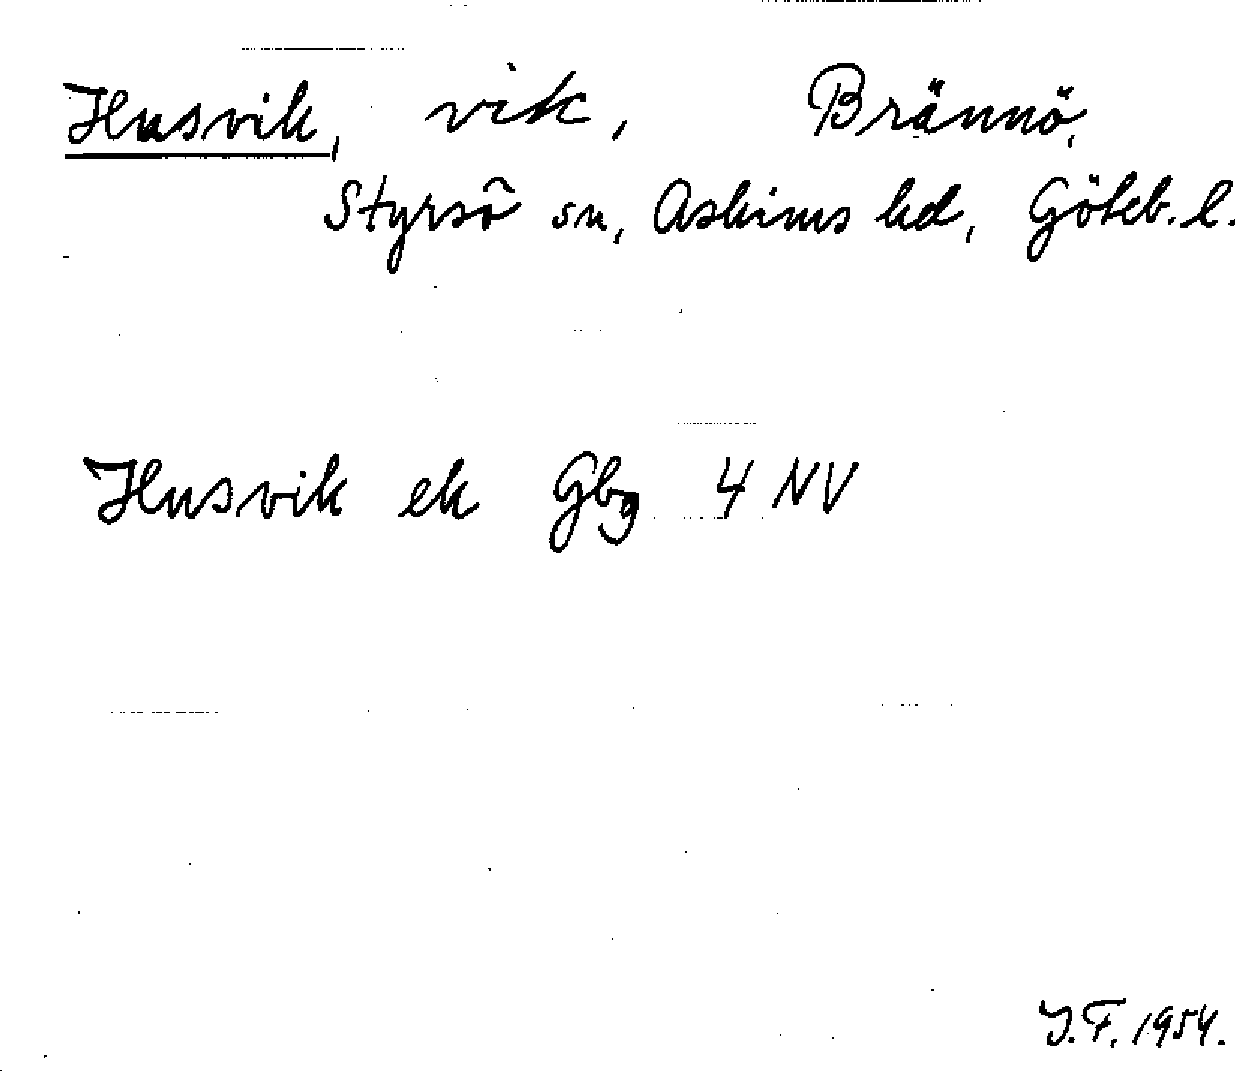 Husvik, vik, Brännö,
Styrsö sn, Askims hd, Göteb. l.
Husvik ek Gbg 4 NV
J.F. 1954.